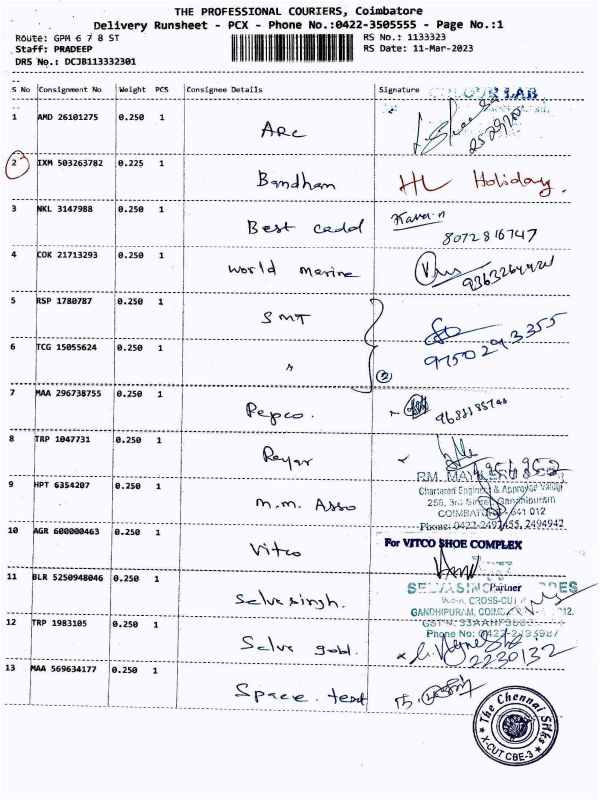 THE PROFESSIONAL COURIERS, Coimbatore
Delivery Runsheet - PCX - Phone No.:0422-3505555 - Page No.:1
Route: GPM 6 7 8 ST RS No.: 1133323
Staff: PRADEEP RS Date: 11-Mar-2023
DRS No.: DCJB113332301
S No Consignment No Weight PCS Consignee Details Signature
COLOUR LAB
1 AMD 26101275 0.250 1 ARC
2 IXM 503263782 0.225 1 Bandham HL Holiday.
3 NKL 3147988 0.250 1 Best cadd
8072816747
4 COK 21713293 0.250 1 World marine
5 RSP 1780787 0.250 1 SMT
6 TCG 15055624 0.250 1 " 2
9750293355
7 MAA 296738755 0.250 1 Pepco.
8 TRP 1047731 0.250 1
9 HPT 6354207 0.250 1 M.M. Asso
Chartered Engineer & Approved Valuer
256, 3rd Street, Gandhipuram
COIMBATORE - 641 012
Phone: 0422-2497455, 2494942
10 AGR 600000463 0.250 1 Vitco
For VITCO SHOE COMPLEX
Partner
11 BLR 5250948046 0.250 1 Selvasingh.
CROSS-CUT
GANDHIPURAM,
Phone No:
12 TRP 1983105 0.250 1 Selva gold.
2230132
13 MAA 569634177 0.250 1 Space. text
The Chennai Silks
X-CUT CBE-3